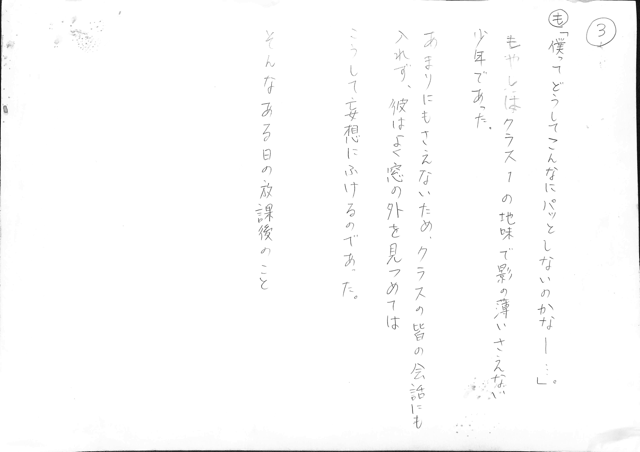 3
も「僕ってどうしてこんなにパッとしないのかなー…」。
もやしはクラス1の地味で影の薄いさえない
少年であった。
あまりにもさえないため、クラスの皆の会話にも
入れず、彼はよく窓の外を見つめては
こうして妄想にふけるのであった。
そんなある日の放課後のこと